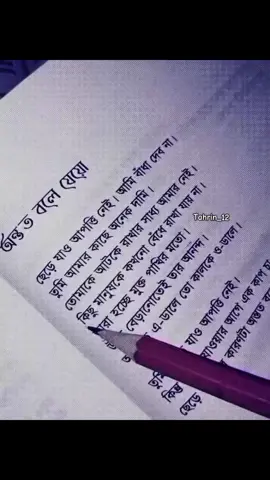 অন্তত বলে যেয়ো
ছেড়ে যাও আপত্তি নেই। আমি বাঁধা দেব না।
তুমি আমার কাছে অনেক দামি।
তোমাকে আটকে রাখার সাধ্য আমার নেই।
কিছু মানুষকে কখনো বেঁধে রাখা যায় না।
হচ্ছে মুক্ত পাখির মতো।
বেড়ানোতেই তার আনন্দ।
এ-ডালে তো কালকে ও-ডালে।
যাও আপত্তি নেই।
যাওয়ার আগে এক কাপ চা
তুমি কারণটা অন্তত
কিন্তু
ছেড়ে
Tohrin_12